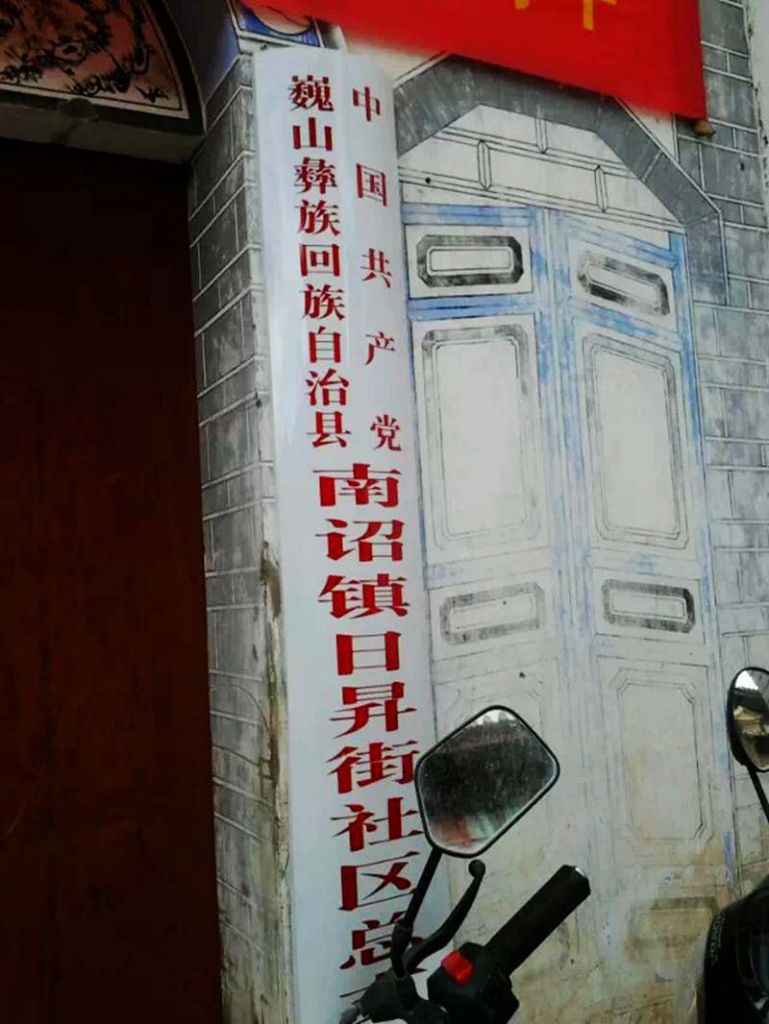 中国共产党
巍山彝族回族自治县
南诏镇日昇街社区总